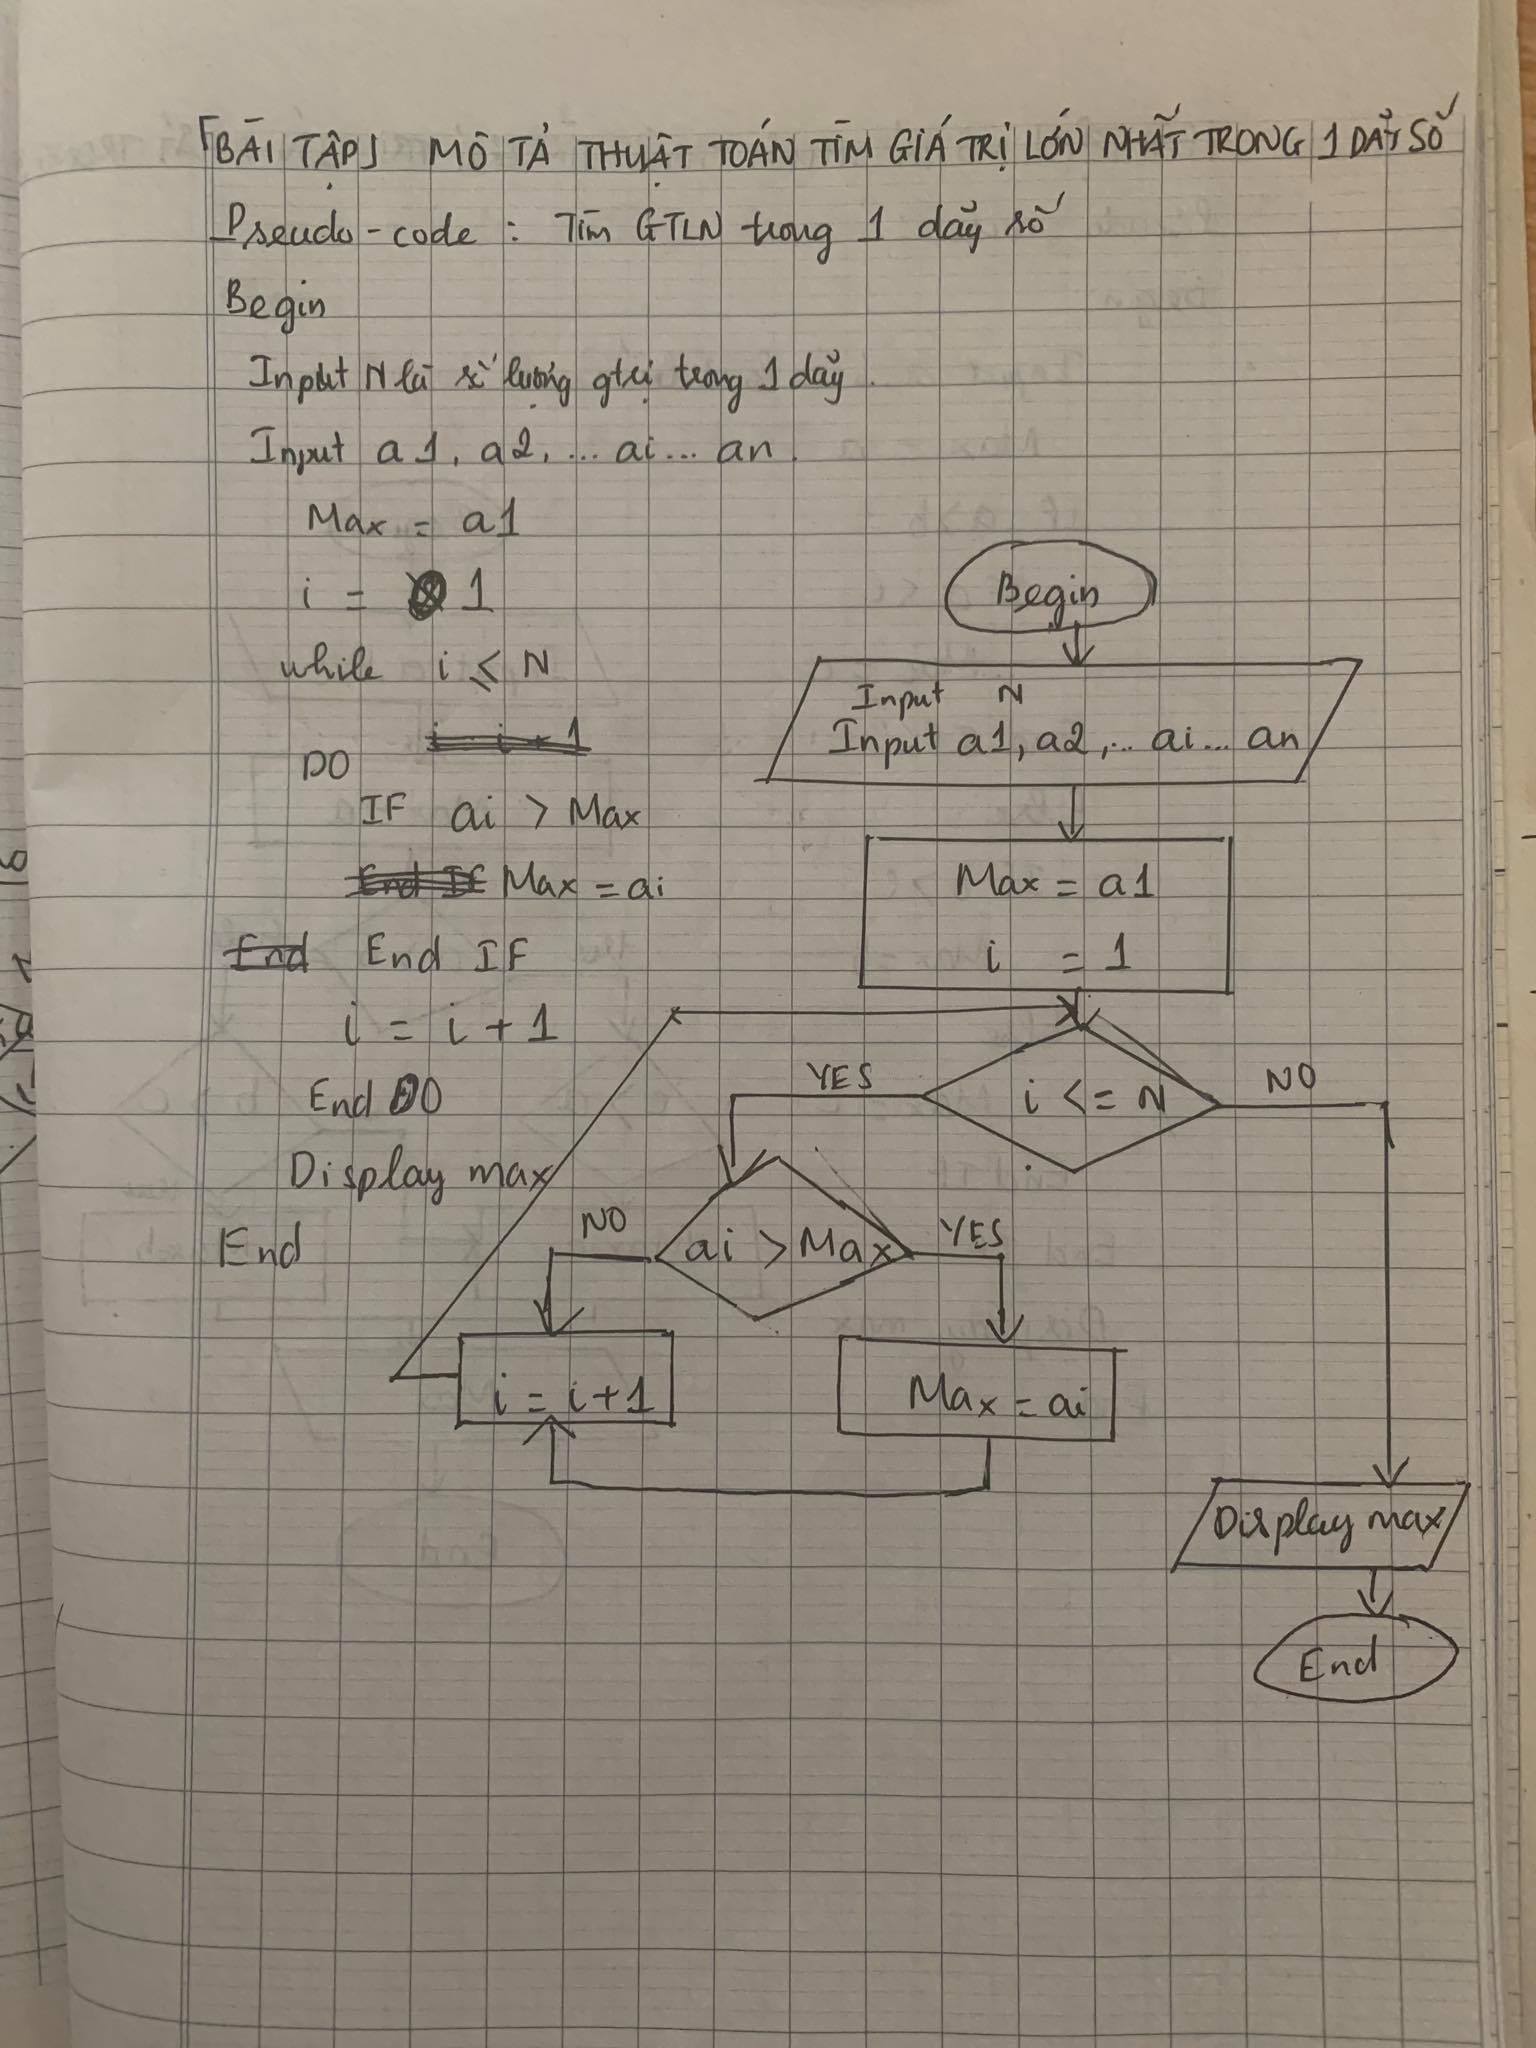 [BÀI TẬP] MÔ TẢ THUẬT TOÁN TÌM GIÁ TRỊ LỚN NHẤT TRONG 1 DÃY SỐ
Pseudo-code : Tìm GTLN trong 1 dãy số
Begin
Input N là số lượng gtrị trong 1 dãy.
Input a1, a2, ... ai ... an.
Max = a1
i = 1
while i ≤ N
DO
IF ai > Max
Max = ai
End IF
i = i + 1
End DO
Display max
End
Begin
Input N
Input a1, a2, ... ai ... an
Max = a1
i = 1
i <= N
YES
NO
ai > Max
NO
YES
i = i + 1
Max = ai
Display max
End